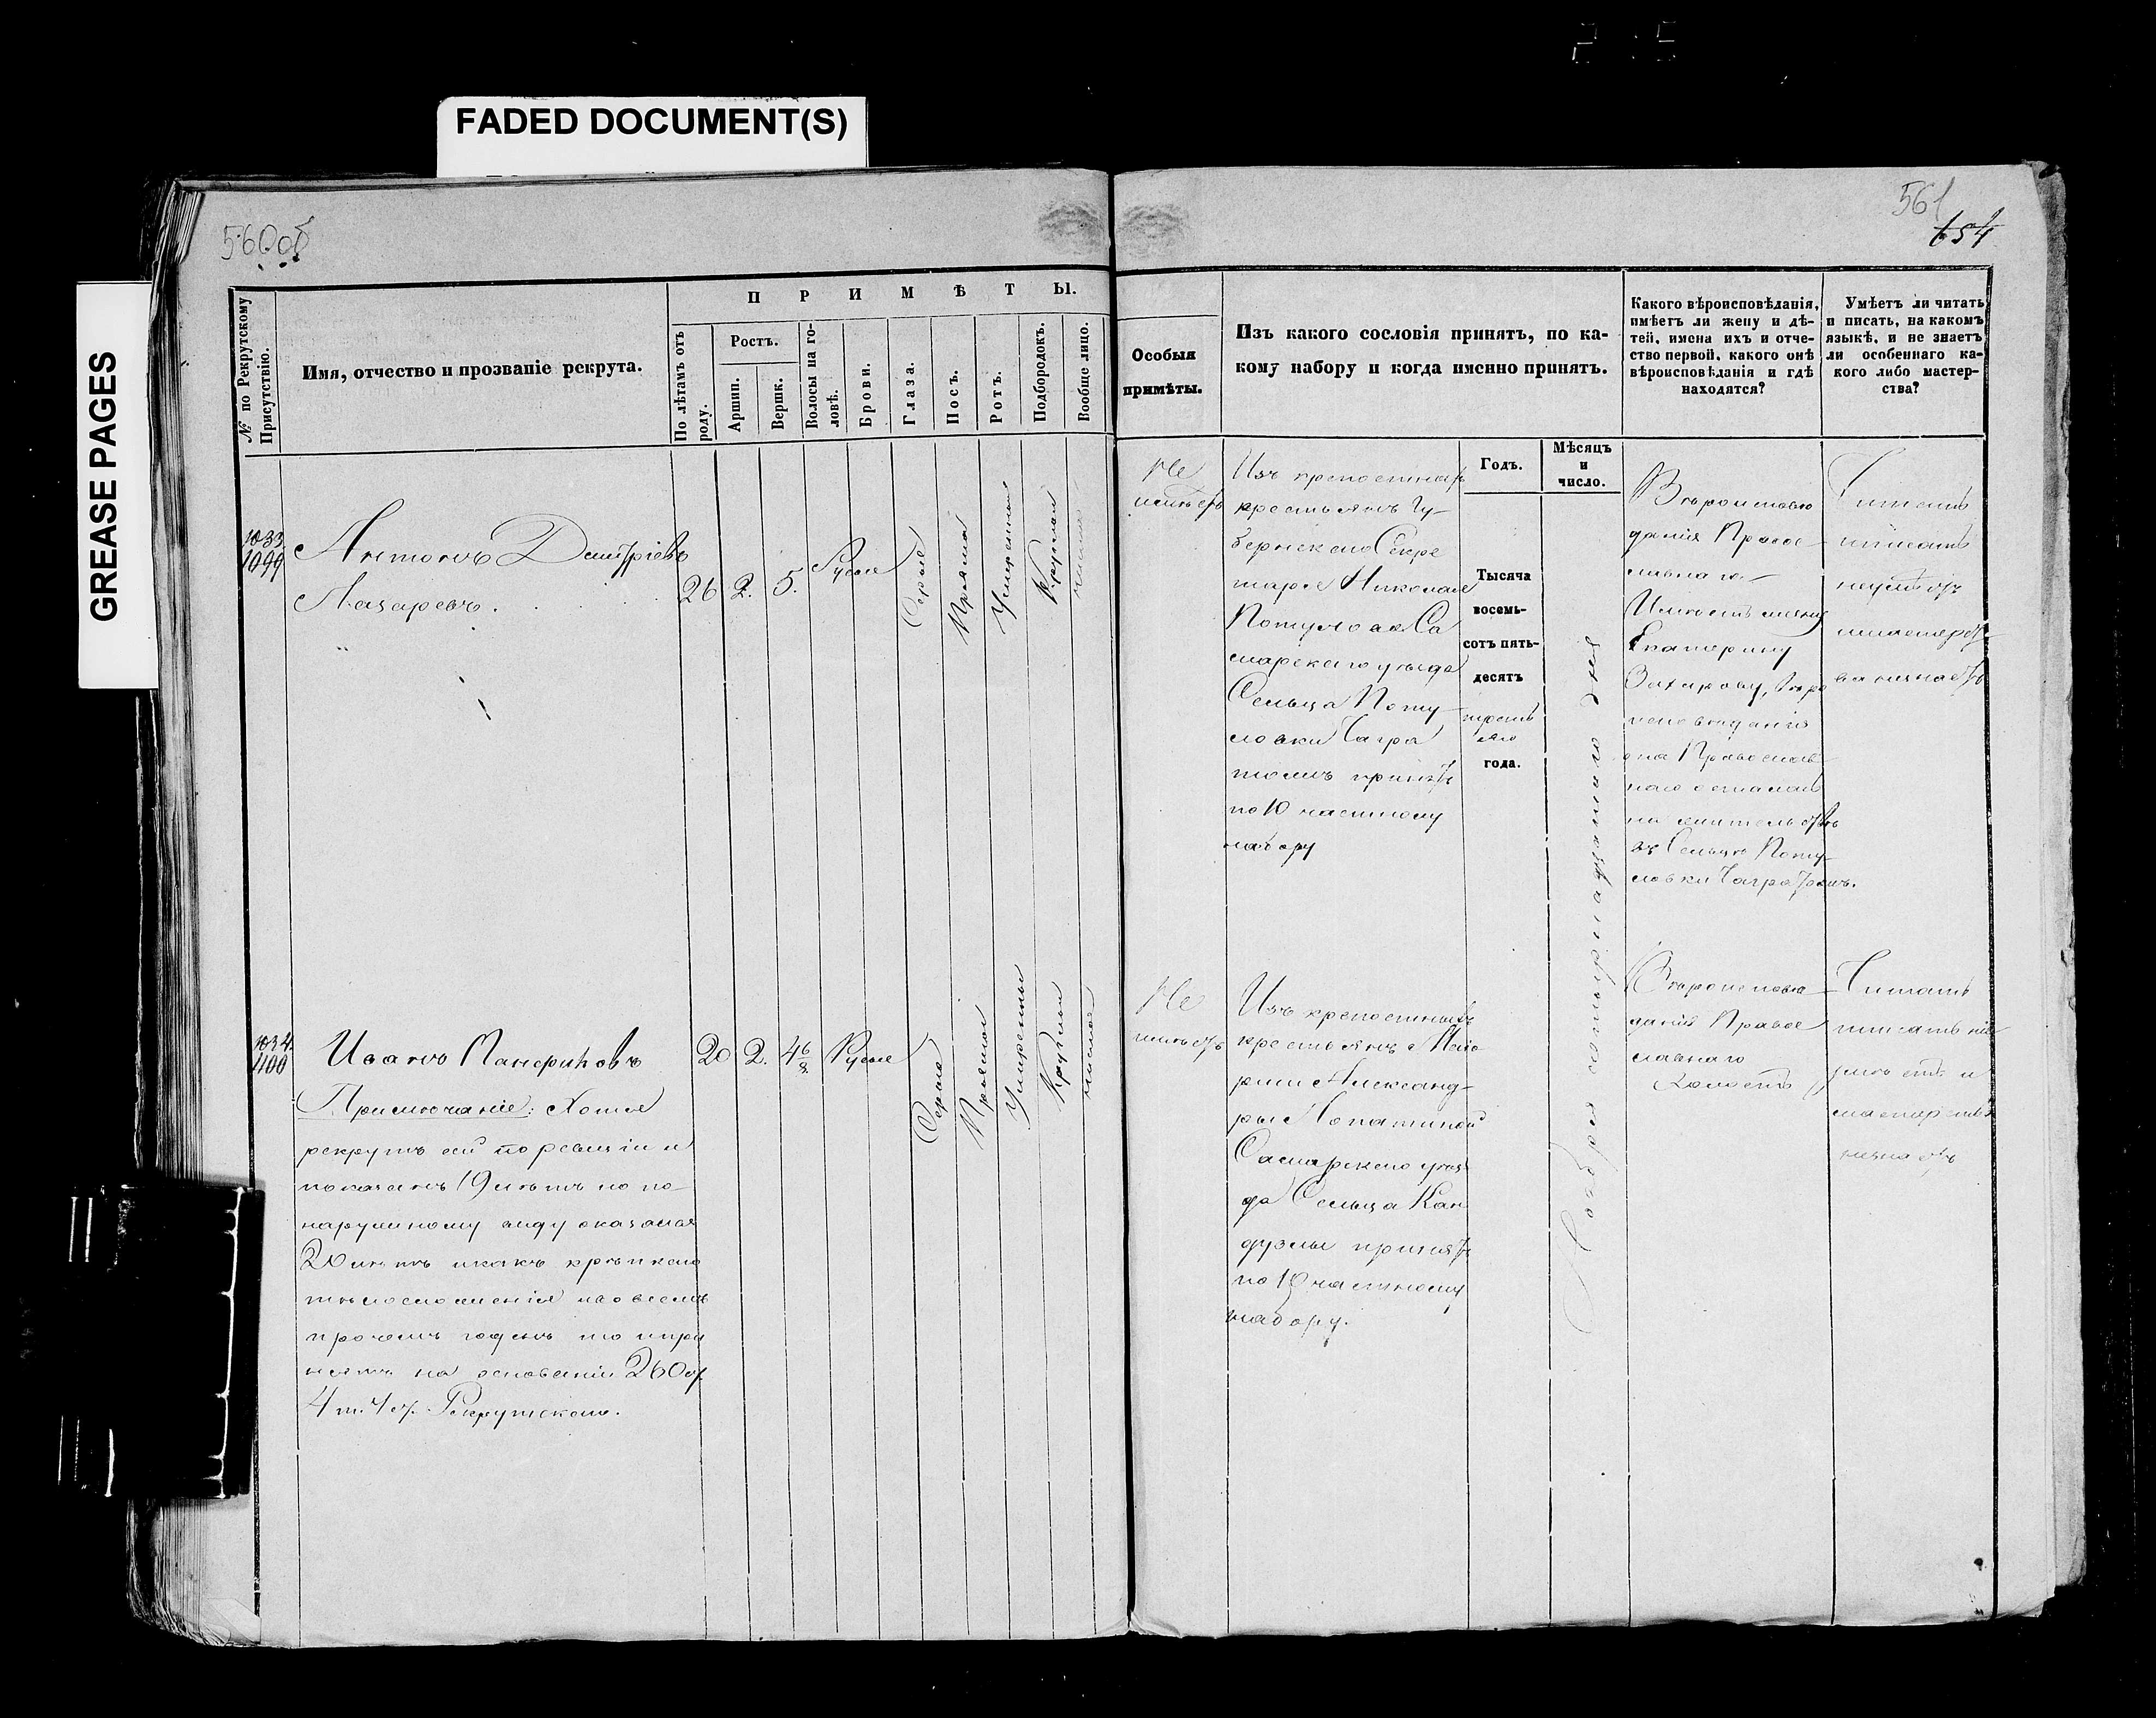 FADED DOCUMENT(S)
GREASE PAGES
560об
561
654
№ по Рекрутскому Присутствію.
Имя, отчество и прозваніе рекрута.
ПРИМѢТЫ.
По лѣтамъ отъ роду.
Ростъ.
Аршин.
Вершк.
Волосы на головѣ.
Брови.
Глаза.
Носъ.
Ротъ.
Подбородокъ.
Вообще лицо.
Особыя
примѣты.
Изъ какого сословія принятъ, по ка-
кому набору и когда именно принятъ.
Годъ.
Мѣсяцъ
и
число.
Какого вѣроисповѣданія,
имѣетъ ли жену и дѣ-
тей, имена ихъ и отче-
ство первой, какого онѣ
вѣроисповѣданія и гдѣ
находятся?
Умѣетъ ли читать
и писать, на какомъ
языкѣ, и не знаетъ
ли особеннаго ка-
кого либо мастер-
ства?
1033
1099
Антонъ Дмитріевъ
Лазаревъ.
26
2.
5.
Русые
Серые
Прямой
Умеренный
Круглой
чистое
Не
имѣетъ
Изъ крепостныхъ
крестьянъ Гу-
бернскаго Секре
таря Николая
Потулова Са
марскаго уѣзда
Сельца Поту-
ловки Чагра
тожъ принятъ
по 10 частному
набору
Тысяча
восемь-
сотъ пять-
десятъ
третья
го
года.
Ноября четырнадцатаго дня
Вѣроисповѣ
данія Право-
славнаго-
Имѣетъ жену
Екатерину
Захарову, вѣро
исповѣданія
она Православ-
наго осталась
на жительствѣ
въ Сельцѣ Поту-
ловки Чагра тожъ.
Читать
и писать
неумѣетъ
мастерст-
ва незнаетъ
1034.
1100
Иванъ Панфиловъ
20
2.
4 6/8
Русые
Серые
Прямой
Умеренный
Круглый
чистое
Примѣчаніе: Хотя
рекрутъ сей по ревизіи и
показанъ 19 лѣтъ но по
наружному виду оказался
20 лѣтъ и какъ крѣпкаго
тѣлосложенія и во всемъ
прочемъ годенъ то и при
нятъ на основаніи 260 ст
4 т. Уст. Рекрутскаго.
Не
имѣетъ
Изъ крепостныхъ
крестьянъ Маіо
рши Александ-
ры Лопатиной
Самарскаго уѣз
да Сельца Кан
дузлы принятъ
по 10 частному
набору.
Вѣроисповѣ-
данія Право
славнаго
Холостъ
Читать
писать не
умѣетъ и
мастерства
незнаетъ